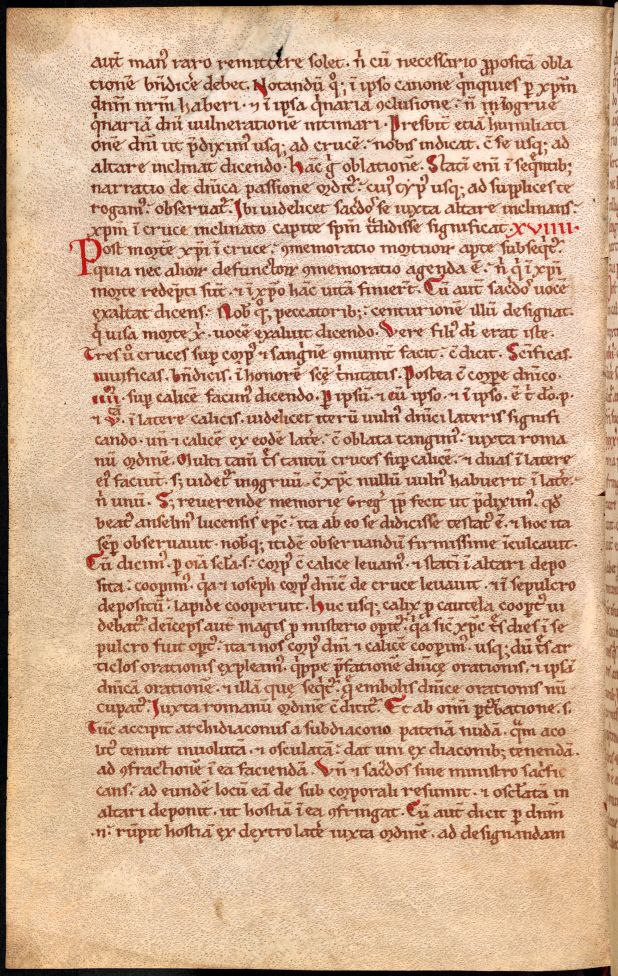 aut̄ man᷒ raro remittere solet. ñ cū necessario ꝓpositā obla
tionē bn̄dicˈe debet. Notandū qͦ; ī ipso canone qͥnquies ꝑ xp̄m
dn̄m nrm̄ haberi. ⁊ ī ipsa qͥnaria ꝯclusione. ñ incongrue
qͥnariā dnī uulneratione intimari. Presbit̄ etiā humiliati
onē dnī ut p̄diximꝰ usq; ad crucē. nobis indicat. cē se usq; ad
altare inclinat dicendo. hāc gͦ oblationē. Statī enī ī seqn̄tib;
narratio de dn̄ica passione ordit᷒. cuiꝰ typꝰ usq; ad supplices te
rogamꝰ. obseruat᷒. Ibi uidelicet sac̄dos se iuxta altare inclinans.
xp̄m ī cruce inclinato capite sp̄m t̄didisse significat. XVIIII.
Post morte xp̄i ī cruce. ꝯmemoratio mortuoꝝ apte subseqt᷒.
quia nec alioꝝ defunctoꝝ ꝯmemoratio agenda ē. ñ qͥ ī xp̄i
morte redepti sūt. ⁊ ī xp̄o hāc uitā finiert̄. Cū aut̄ sac̄dos uocē
exaltat dicens. Nob qͦ, peccatorib;. centurionē illū designat.
qͥ uisa morte x̄. uocē exaltauit dicendo. Vere filiꝰ dī erat iste.
Tres ū cruces sup corpꝰ ⁊ sangnē ꝯmunit̄ facit. cē dicit. Sc̄ificas.
uiuificas. bn̄dicis. ī honorē scē tnitatis. Postea cē corpe dn̄ico.
IIII. sup calicē facimꝰ dicendo. ꝑ ipsū. ⁊ cū ipso. ⁊ ī ipso. ē t̄ do. p̄.
⁊ ī latere calicis. uidelicet iterū uulnꝰ dn̄ici lateris signifi
cando. un̄ ⁊ calicē ex eodē lat̄e. cē oblata tangimꝰ. iuxta roma
nū ordinē. Multi tam̄ t̄s tantū cruces sup calicē. ⁊ duas ī latere
eiꝰ faciunt. s; uidet᷒ incongruū. cē xp̄c nullū uulnꝰ habuerit ī lat̄e.
ñ unū. S; reuerende memorie Greg᷒ pp̄ fecit ut p̄diximꝰ. qd̄
beatꝰ anselmꝰ lucensis ep̄c. ita ab eo se didicisse testatꝰ ē. ⁊ hoc ita
sēp obseruauit. nobq; itidē obseruandū firmissime īculcauit.
Cū dicimꝰ. p oīa scl̄a. s. corpꝰ cē calice leuamꝰ. ⁊ statī ī altari depo
sita. coopimꝰ. qͥa ⁊ ioseph corpꝰ dn̄icē de cruce leuauit. ⁊ ī sepulcro
depositū. lapide cooperuit. Huc usq; calix p cautela coopt᷒ ui
debat᷒. deīceps aut̄ magis p misterio opit᷒. qͥa sic xp̄c t̄s dies ī se
pulcro fuit opt᷒. ita ⁊ nos corpꝰ dnī ⁊ calicē coopimꝰ. usq; dū t̄s ar
ticlos orationis expleamꝰ. qͥppe p̄fatione dn̄ice orationis. ⁊ ipsā
dn̄icā oratione. ⁊ illā que seqt᷒. q̄ embolis dn̄ice orationis nū
cupat᷒. Iuxta romanū ordinē cē dicit᷒. Et ab omī ptbatione. s.
Tūc accipit archidiaconus a subdiacono patenā nudā. qͣm aco
lit᷒ tenuit inuoluta. ⁊ osculatā. dat uni ex diaconib; tenendā.
ad ꝯfractionē ī ea faciendā. Vn̄ ⁊ sac̄dos sine ministro sacˈfic
cans. ad eundē locū eā de sub corporali resumit. ⁊ osclatā in
altari deponit. ut hostiā ī ea ꝯfringat. Cū aut̄ dicit p dnm̄
.n. rūpit hostiā ex dextro lat̄e iuxta ordinē. ad designandam